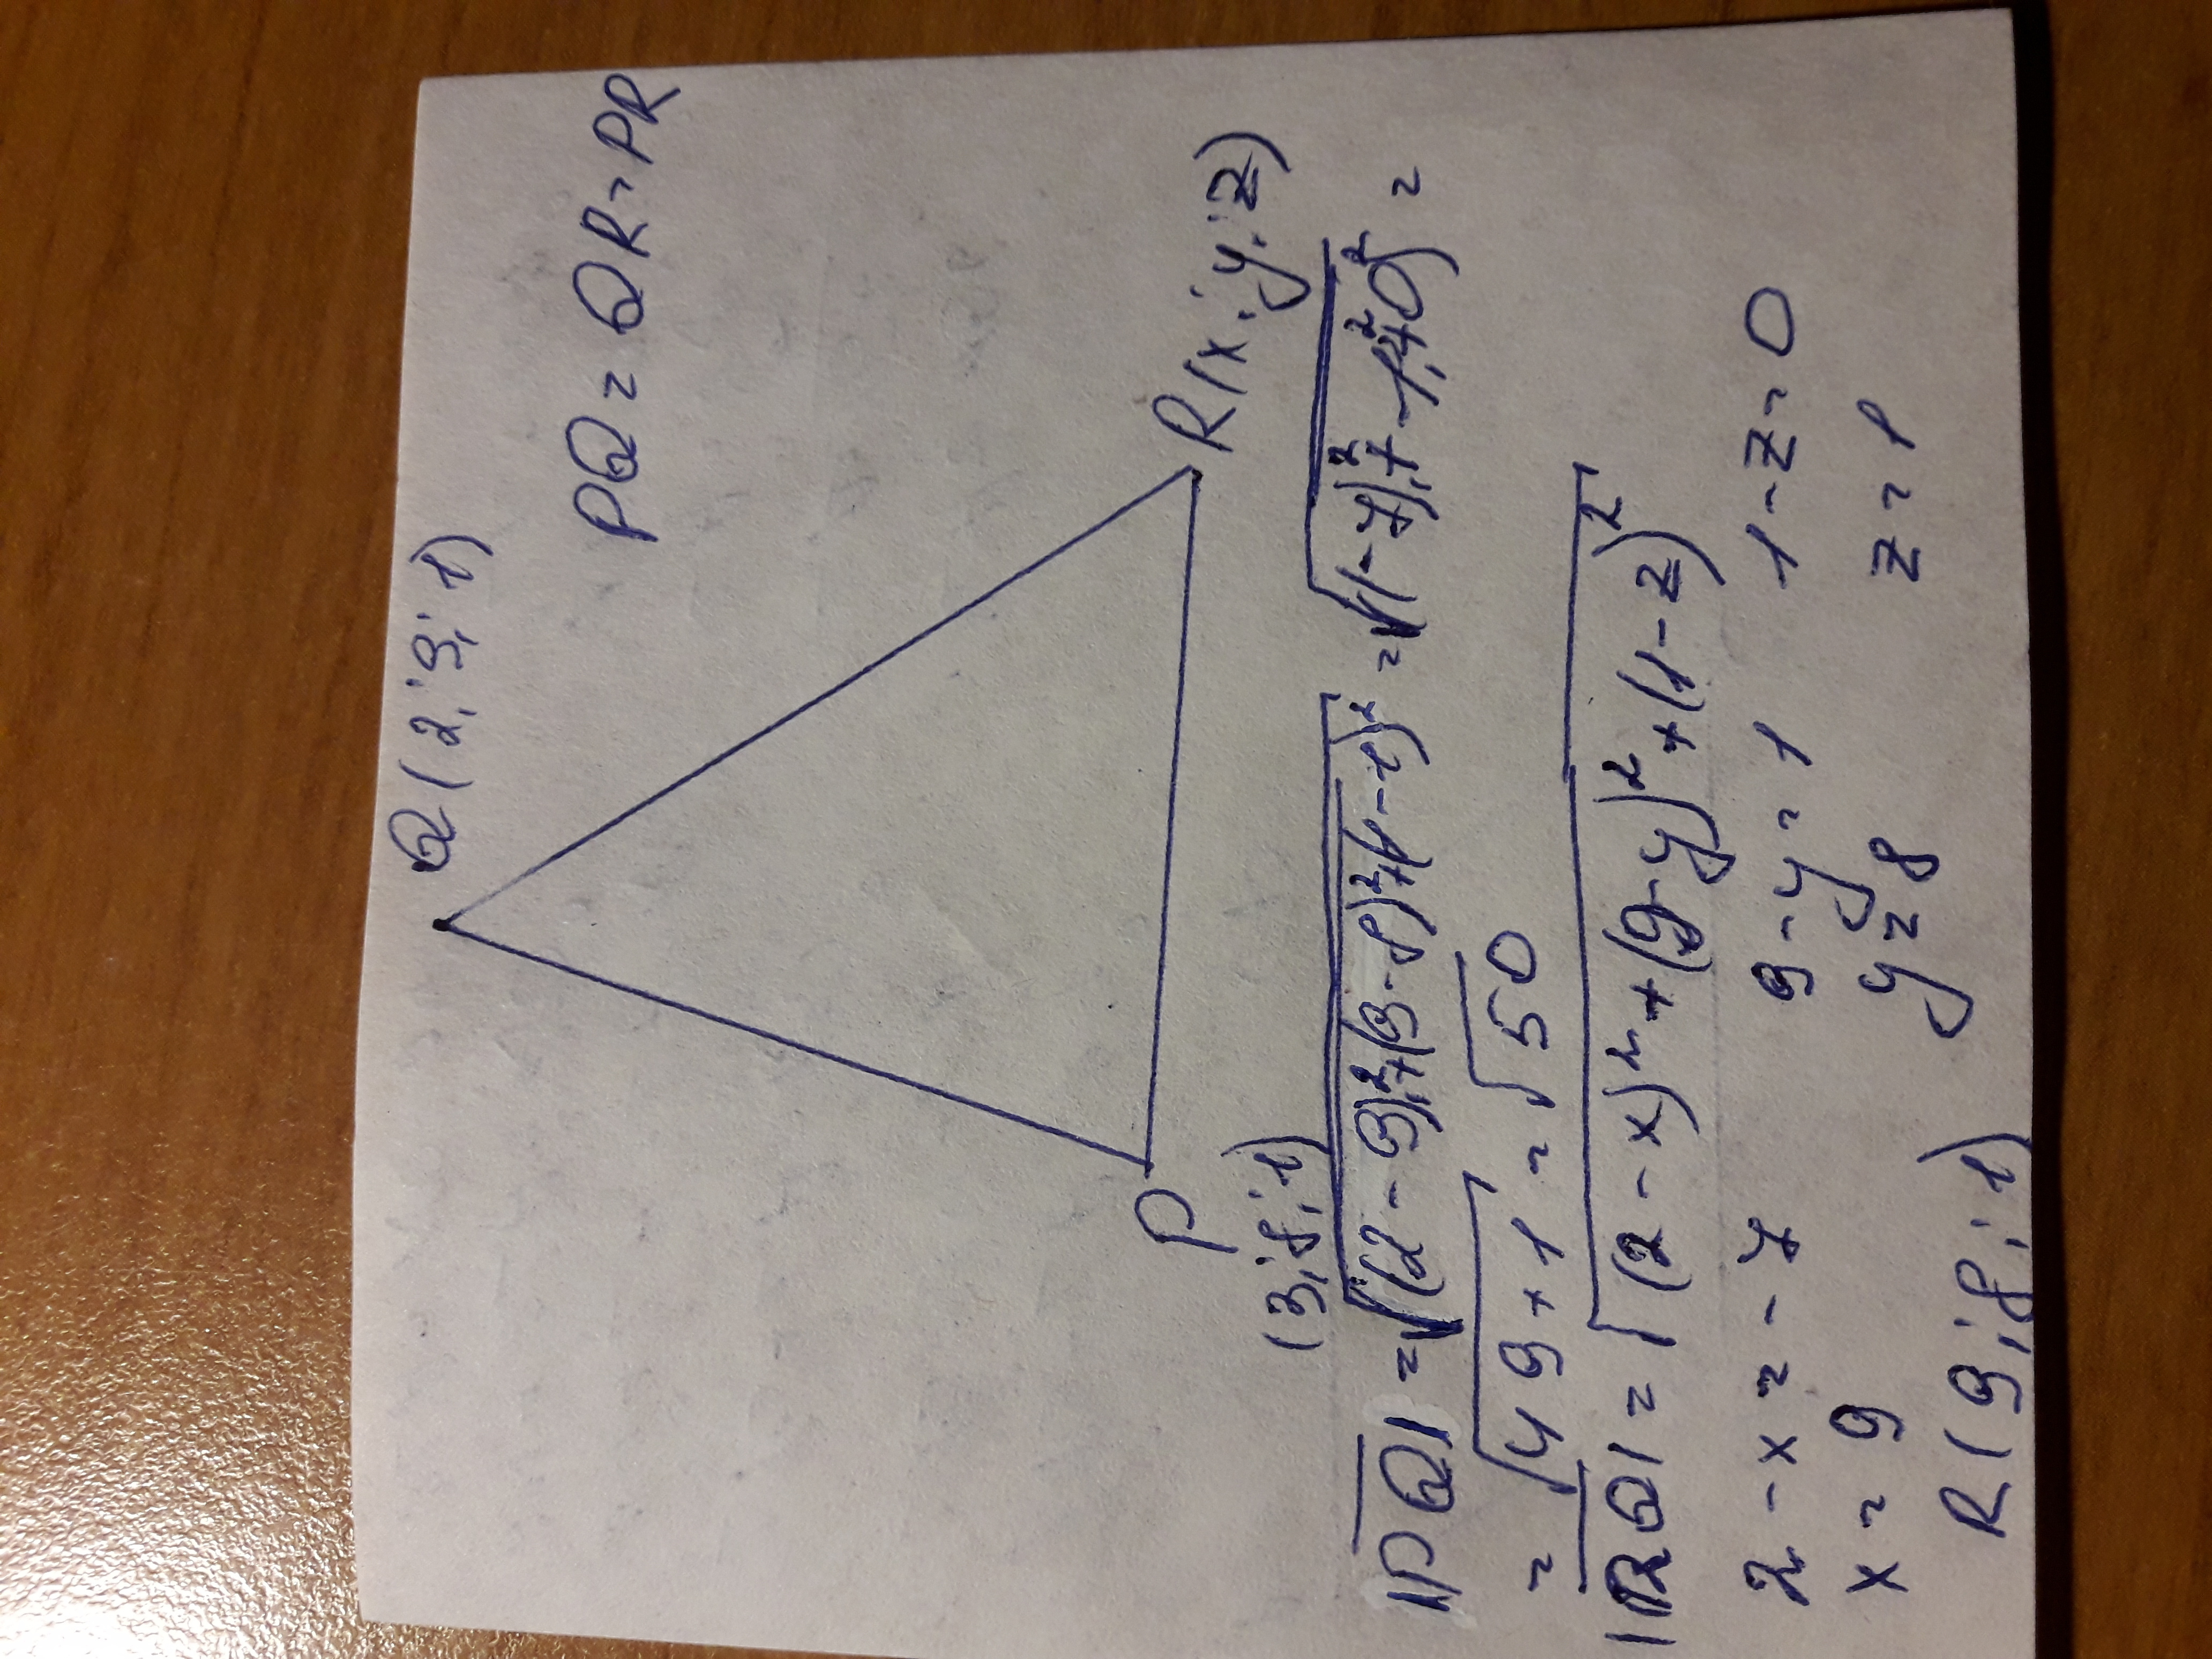 Q(2;9;1)
PQ = QR = PR
P R(x;y;z)
(9;8;1)
|PQ| = √(2-9)²+(9-8)²+(1-1)² = √(-7)²+1²+0² =
= √49+1 = √50
|RQ| = √(2-x)²+(9-y)²+(1-z)²
2-x=-7 9-y=1 1-z=0
x=9 y=8 z=1
R(9;8;1)